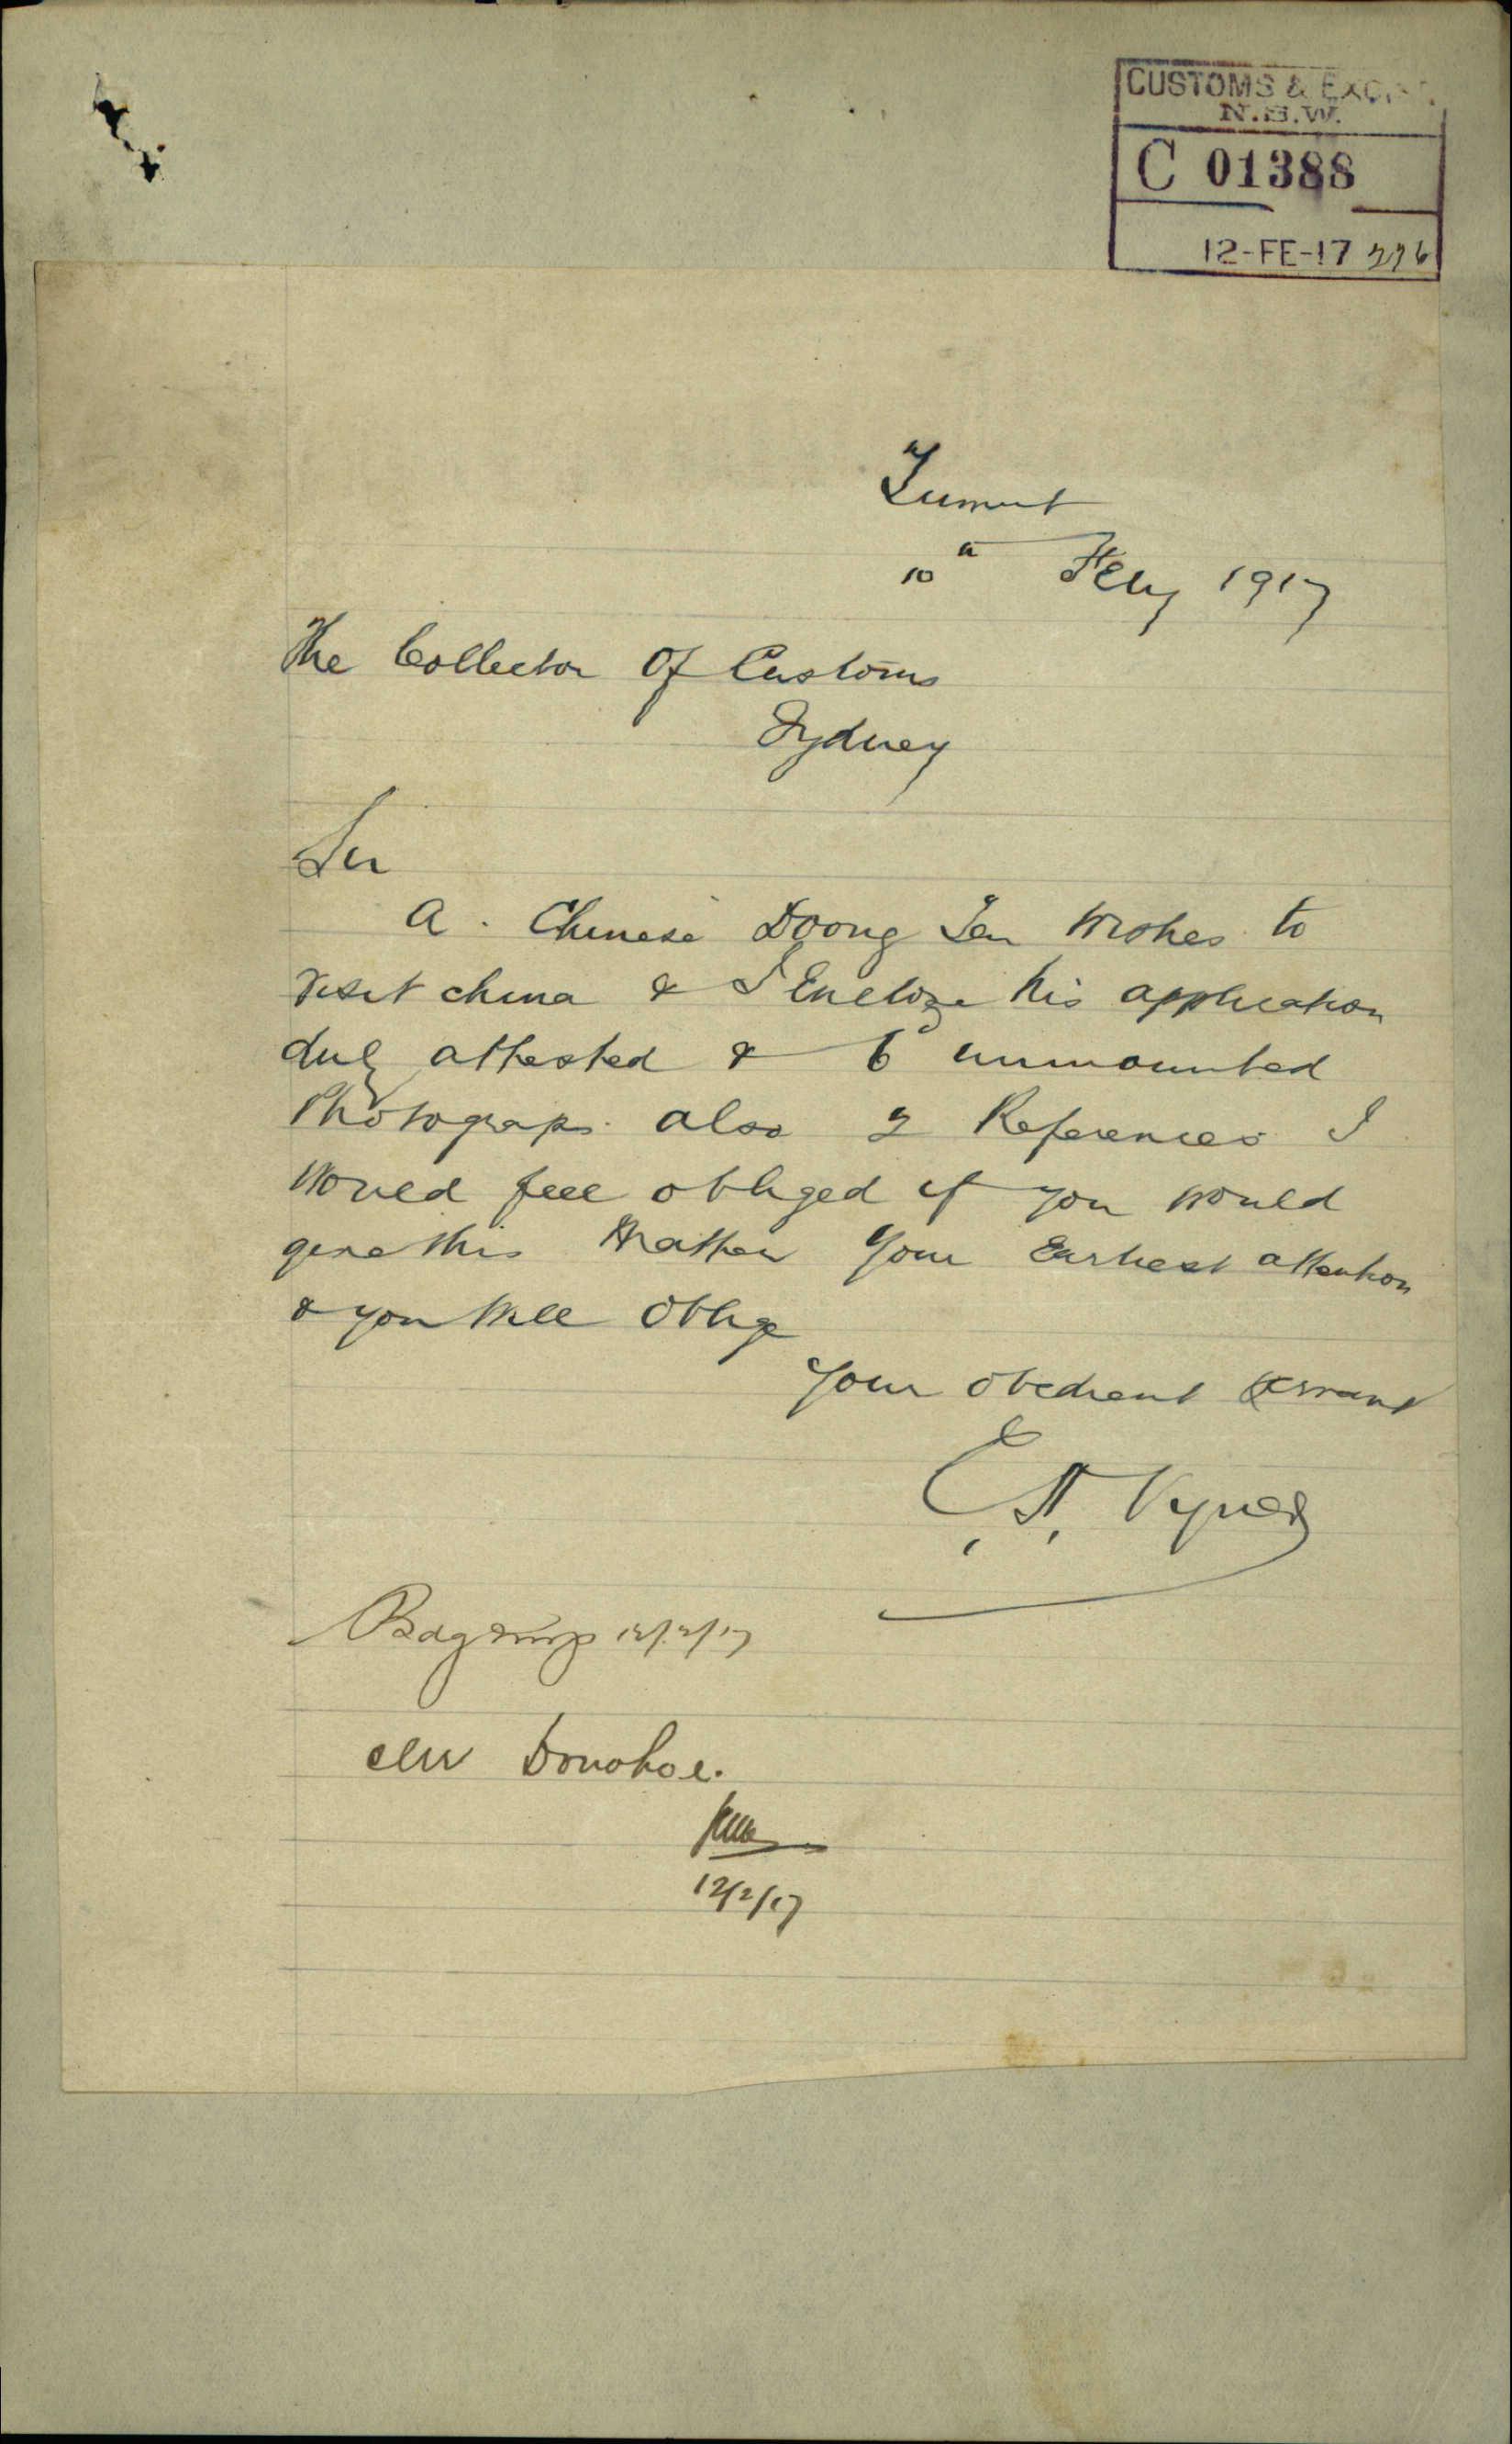 CUSTOMS & EXCISE
N.S.W.
C 01388
12-FE-17 226
Tumut
10th Feby 1917
The Collector Of Customs
Sydney
Sir
A. Chinese Doong Sen Wishes to
visit china & I Encloze his application
duly attested & 6 unmounted
Photograps. also 2 References I
Would feel obliged if you would
give this Matter Your Earliest attention
& you Will Oblige
Your Obedient Servant
E. A. Vyner
12/2/17
Mr Donohoe.
12/2/17